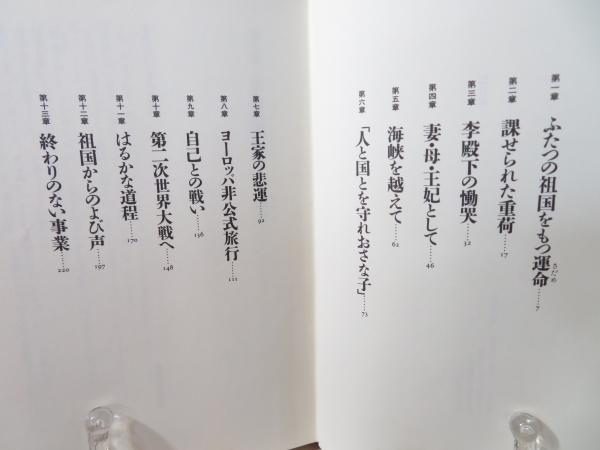 第一章 ふたつの祖国をもつ運命……7
さだめ
第二章 課せられた重荷……17
第三章 李殿下の慟哭……32
第四章 妻・母・王妃として……46
第五章 海峡を越えて……62
第六章 「人と国とを守れおさな子」……73
第七章 王家の悲運……92
第八章 ヨーロッパ非公式旅行……111
第九章 自己との戦い……136
第十章 第二次世界大戦へ……148
第十一章 はるかな道程……170
第十二章 祖国からのよび声……197
第十三章 終わりのない事業……220